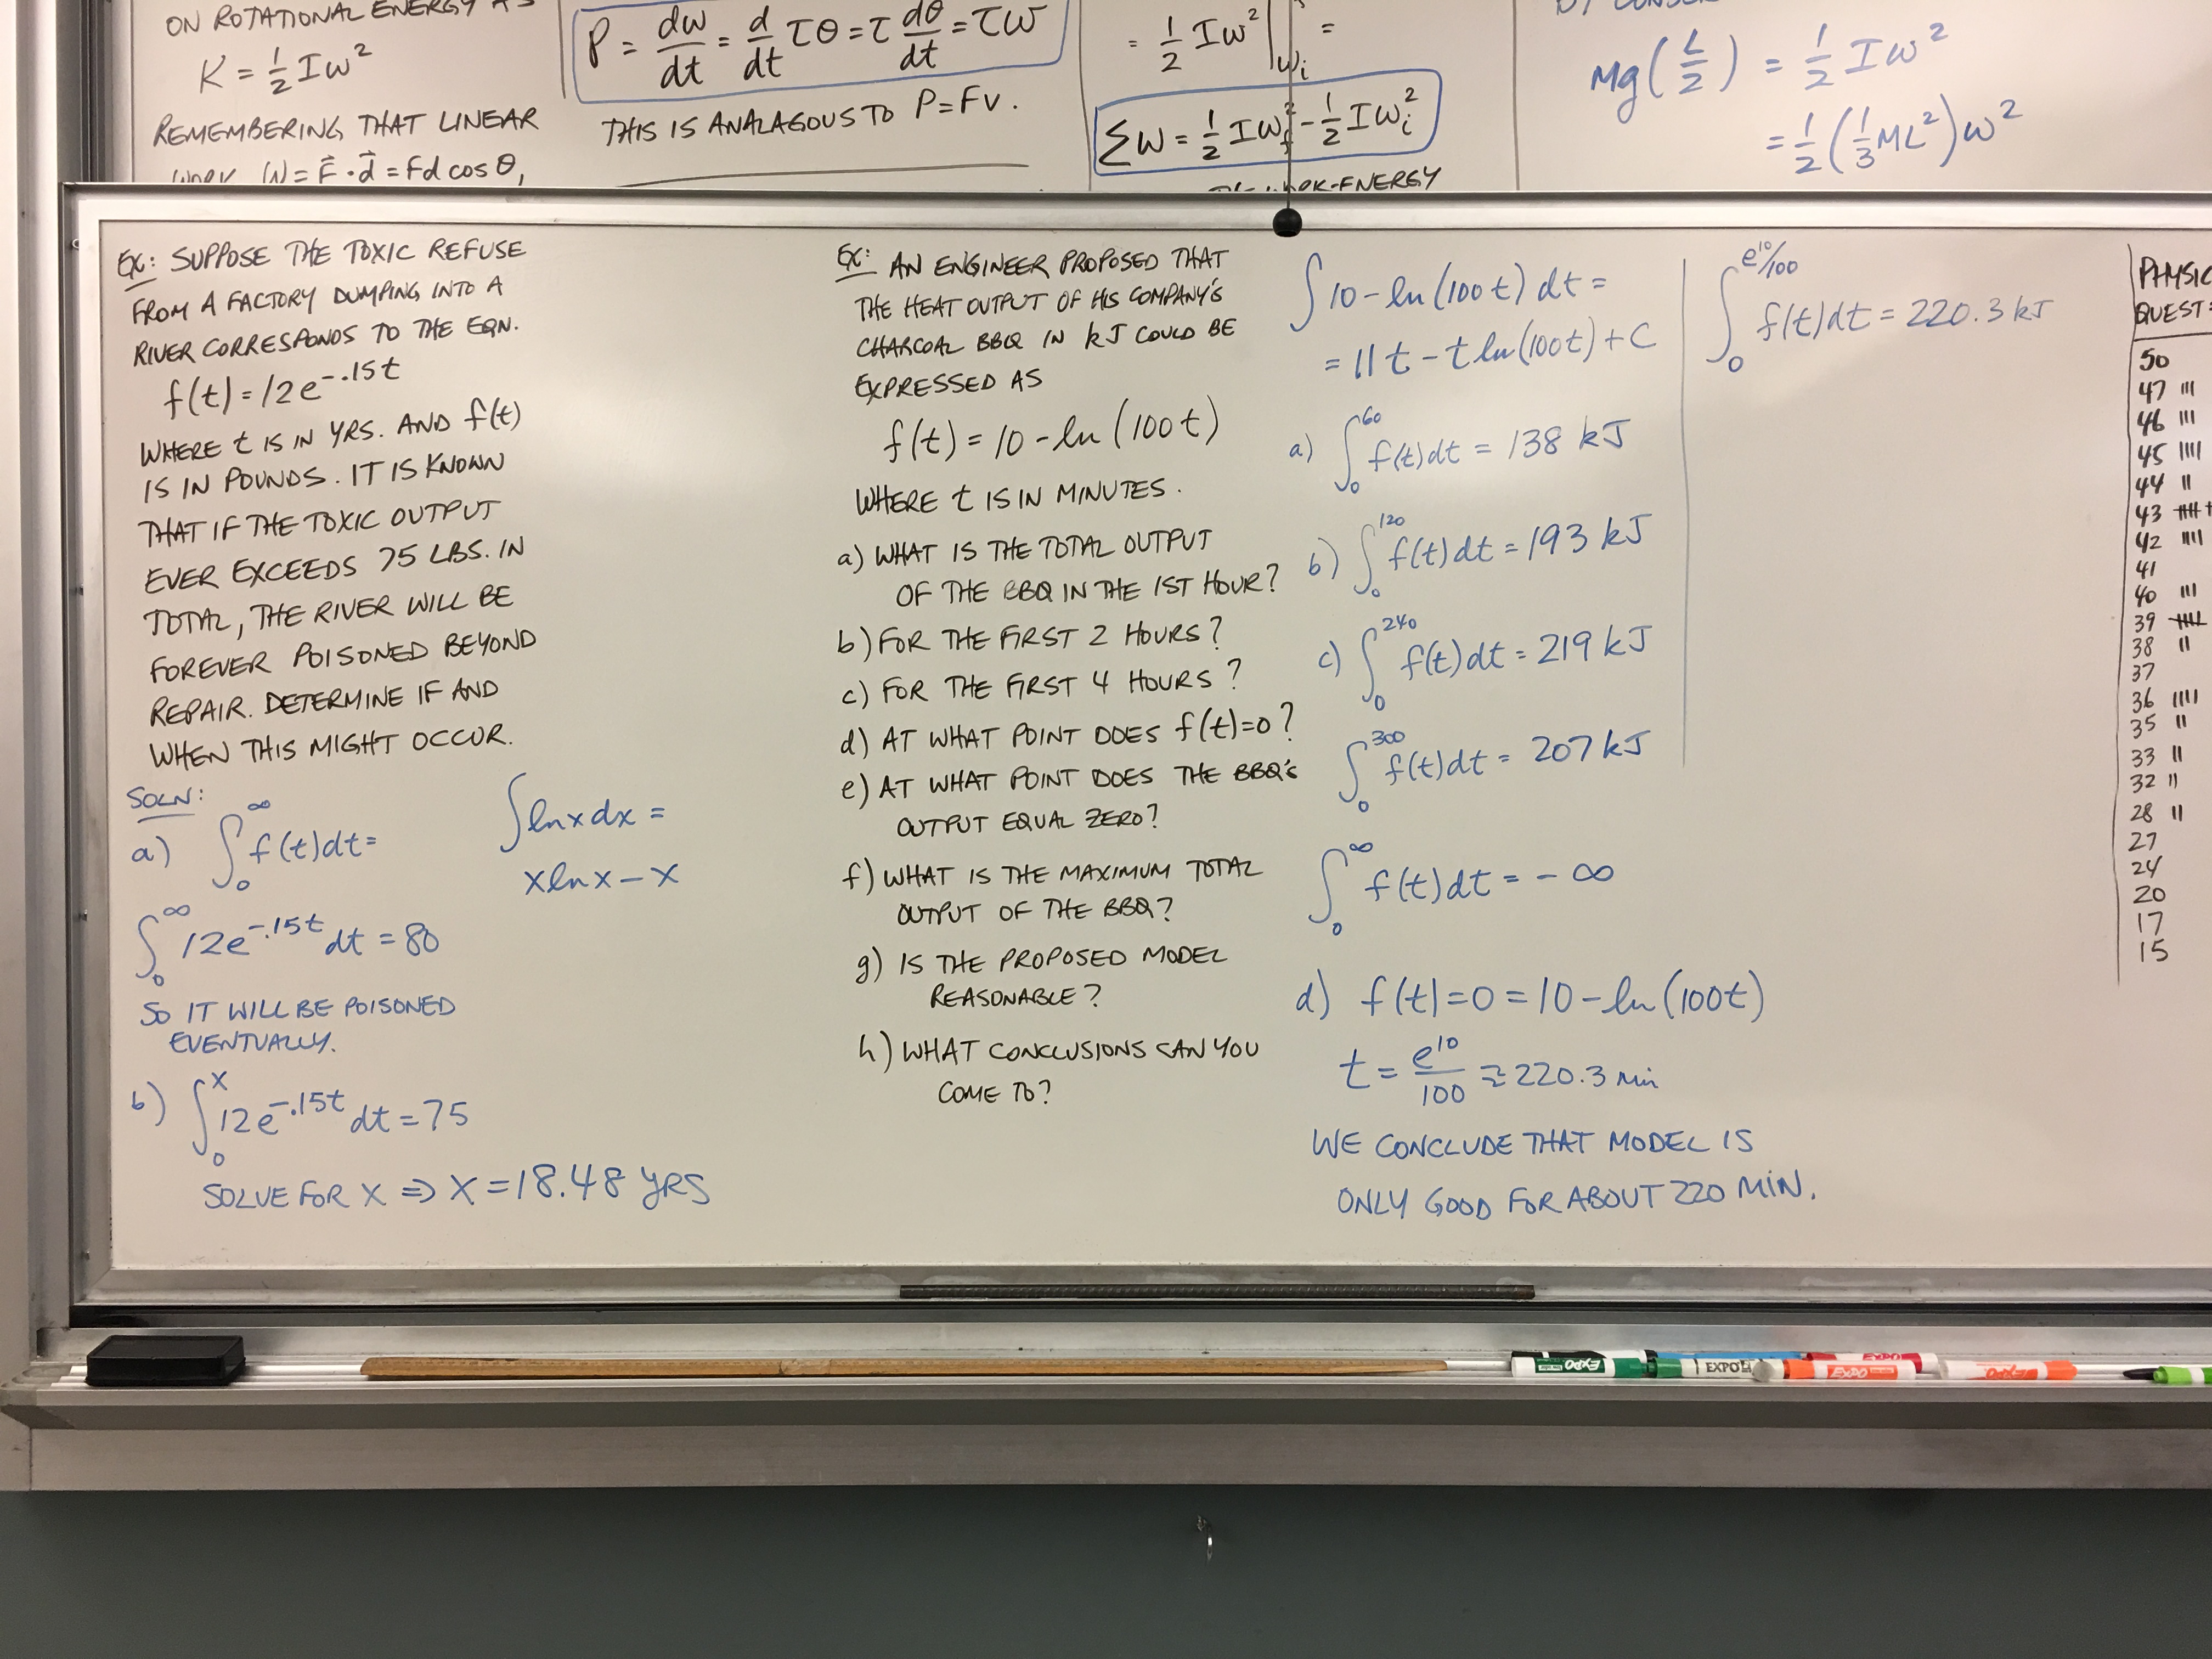 ON ROTATIONAL ENERGY AS
K = ½ Iω²
REMEMBERING THAT LINEAR
WORK W = F⃗ · d⃗ = Fd cos θ,
P = dw/dt = d/dt τθ = τ dθ/dt = τω
THIS IS ANALAGOUS TO P = Fv.
= ½ Iω² |ωi =
ΣW = ½ Iωf² - ½ Iωi²
WORK-ENERGY
BY CONSER
Mg(L/2) = ½ Iω²
= ½(⅓ML²)ω²
EX: SUPPOSE THE TOXIC REFUSE
FROM A FACTORY DUMPING INTO A
RIVER CORRESPONDS TO THE EQN.
f(t) = 12e^-.15t
WHERE t IS IN YRS. AND f(t)
IS IN POUNDS. IT IS KNOWN
THAT IF THE TOXIC OUTPUT
EVER EXCEEDS 75 LBS. IN
TOTAL, THE RIVER WILL BE
FOREVER POISONED BEYOND
REPAIR. DETERMINE IF AND
WHEN THIS MIGHT OCCUR.
SOLN:
a) ∫₀^∞ f(t)dt =
∫₀^∞ 12e^-.15t dt = 80
SO IT WILL BE POISONED
EVENTUALLY.
b) ∫₀^x 12e^-.15t dt = 75
SOLVE FOR X ⇒ X = 18.48 YRS
∫lnxdx =
xlnx - x
EX: AN ENGINEER PROPOSED THAT
THE HEAT OUTPUT OF HIS COMPANY'S
CHARCOAL BBQ IN kJ COULD BE
EXPRESSED AS
f(t) = 10 - ln(100t)
WHERE t IS IN MINUTES.
a) WHAT IS THE TOTAL OUTPUT
OF THE BBQ IN THE 1ST HOUR?
b) FOR THE FIRST 2 HOURS?
c) FOR THE FIRST 4 HOURS?
d) AT WHAT POINT DOES f(t)=0?
e) AT WHAT POINT DOES THE BBQ'S
OUTPUT EQUAL ZERO?
f) WHAT IS THE MAXIMUM TOTAL
OUTPUT OF THE BBQ?
g) IS THE PROPOSED MODEL
REASONABLE?
h) WHAT CONCLUSIONS CAN YOU
COME TO?
∫10 - ln(100t) dt =
= 11t - t ln(100t) + C
a) ∫₀^60 f(t)dt = 138 kJ
b) ∫₀^120 f(t)dt = 193 kJ
c) ∫₀^240 f(t)dt = 219 kJ
∫₀^300 f(t)dt = 207 kJ
∫₀^∞ f(t)dt = -∞
d) f(t)=0=10-ln(100t)
t = e^10/100 ≈ 220.3 min
WE CONCLUDE THAT MODEL IS
ONLY GOOD FOR ABOUT 220 MIN.
∫₀^(e^10/100) f(t)dt = 220.3 kJ
PHYSIC
QUEST
50
47 III
46 III
45 IIII
44 II
43
42 IIII
41
40 III
39
38 II
37
36 IIII
35 II
33 II
32 II
28 II
27
24
20
17
15
EXPO
EXPO
EXPO
EXPO
EXPO